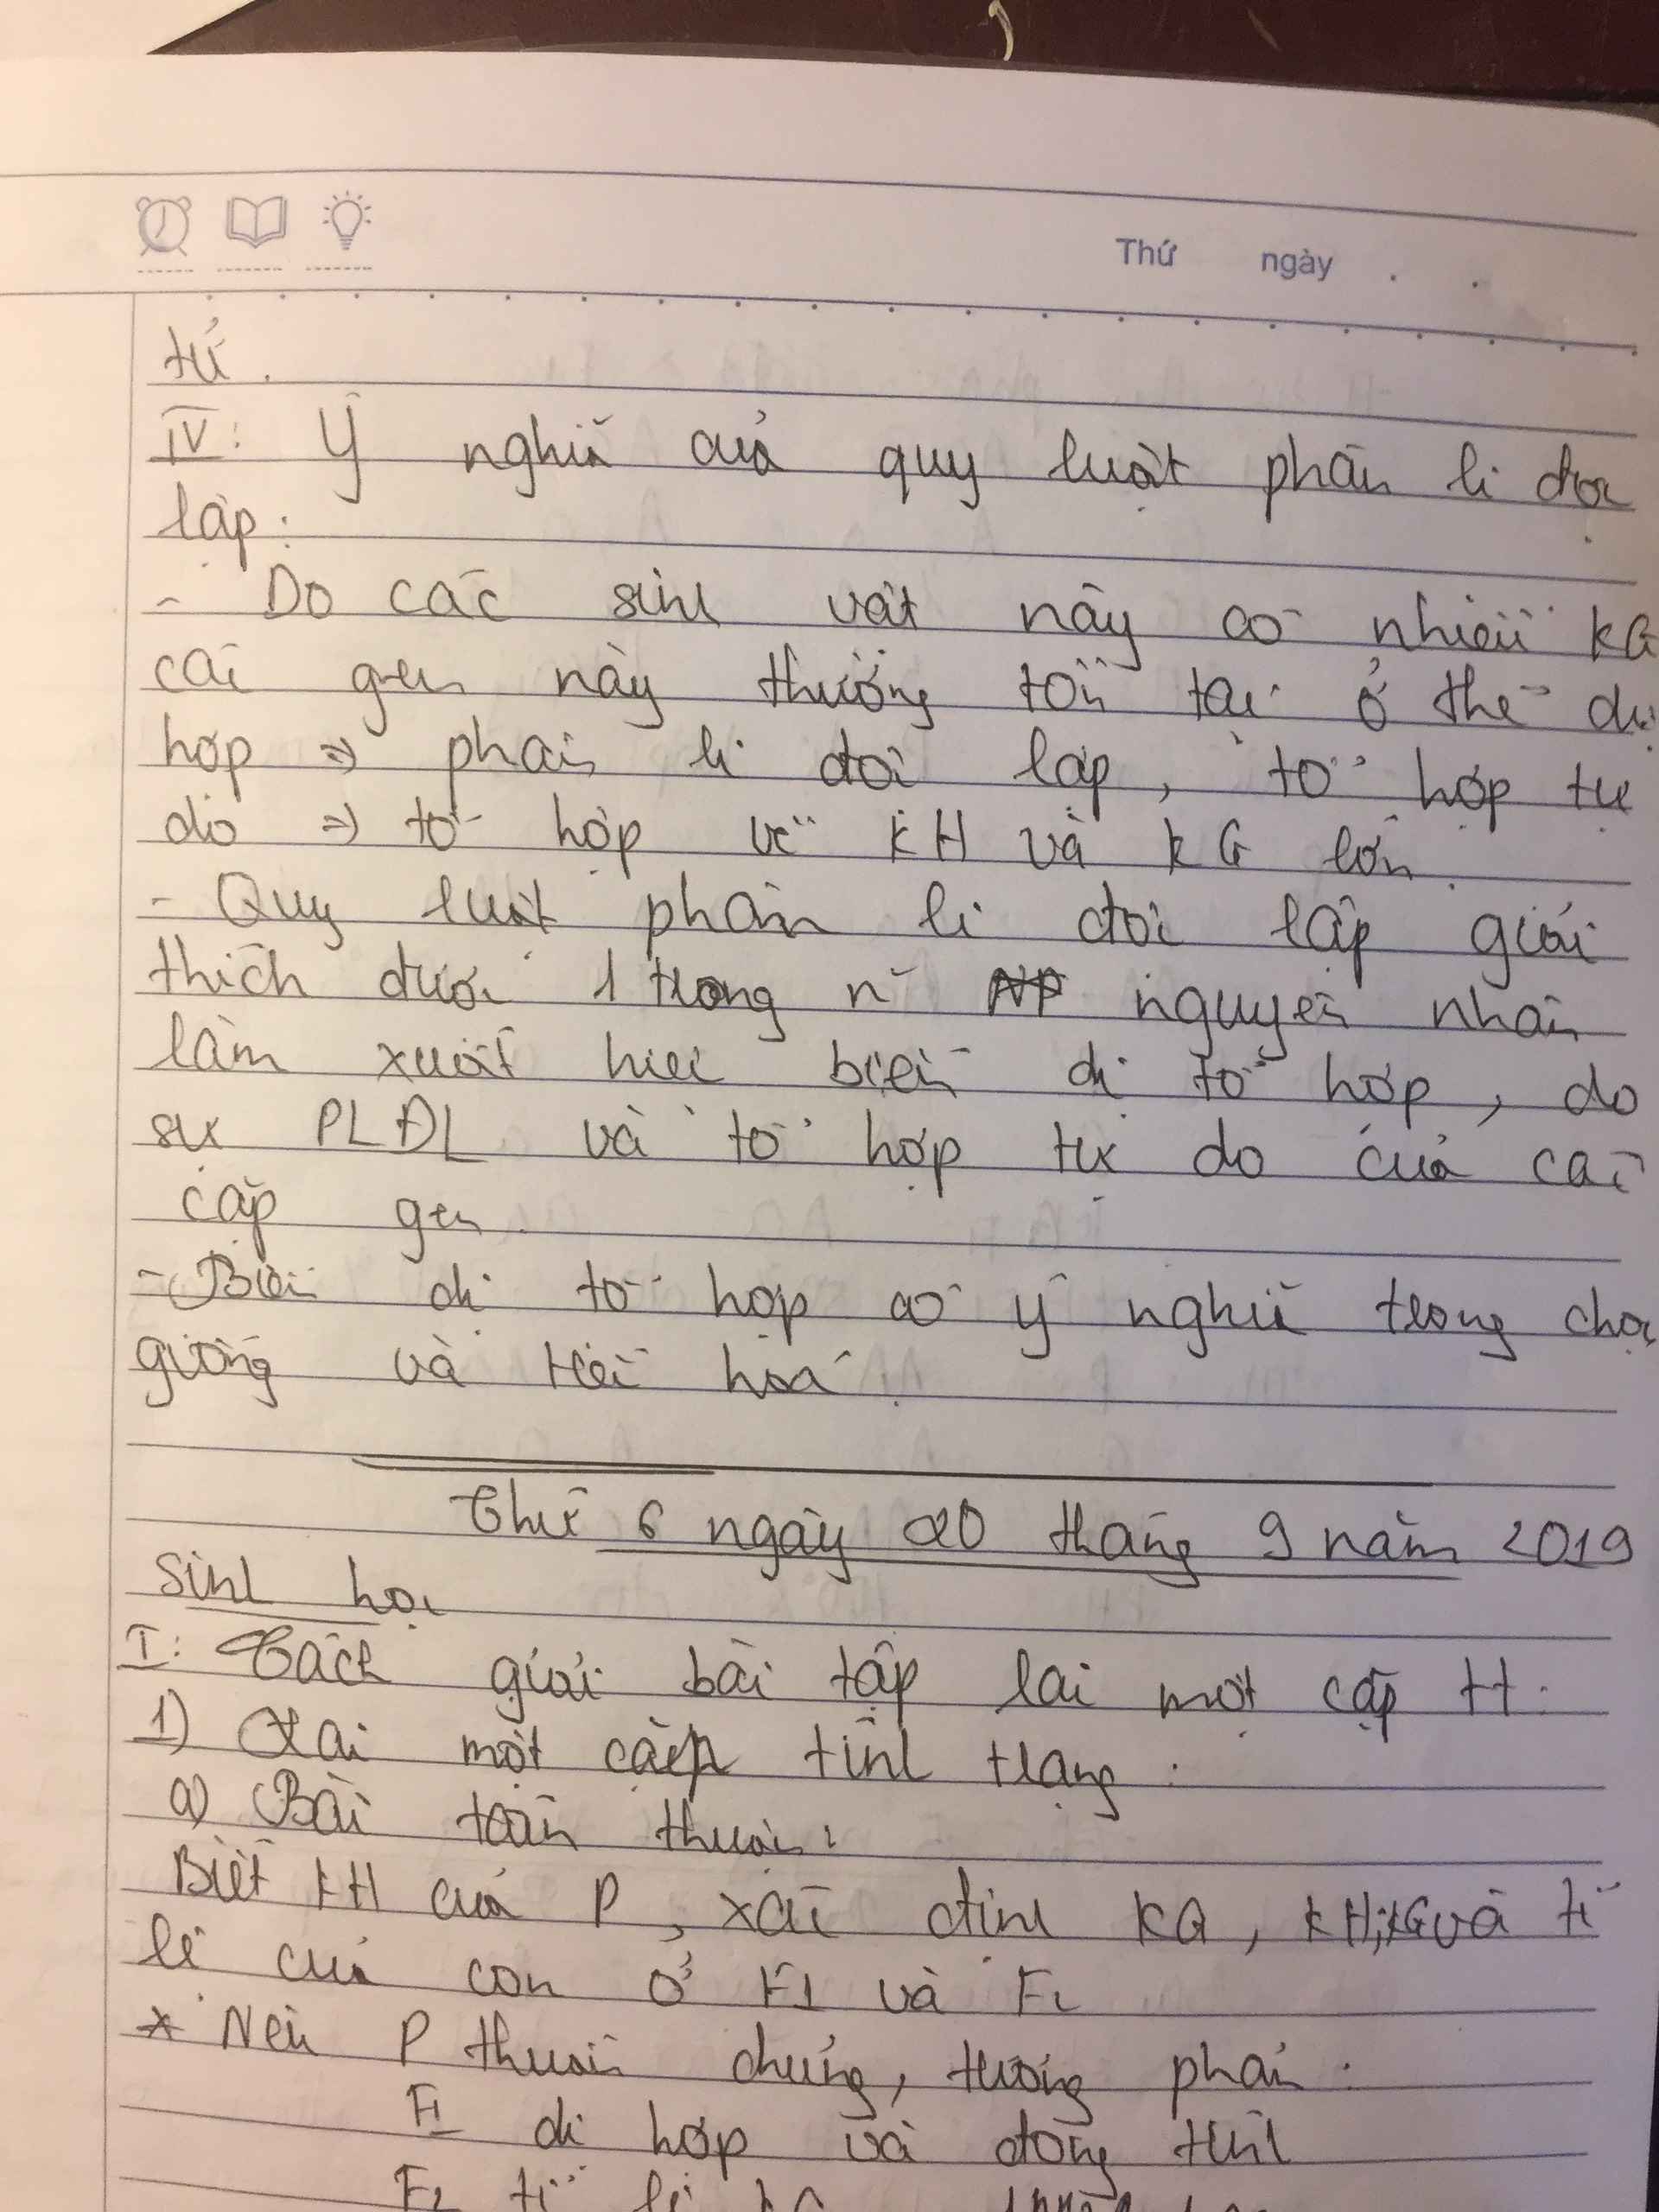 Thứ ngày . .
tử.
IV: Ý nghĩa của quy luật phân li độc
lập:
- Do các sinh vật này có nhiều KG
các gen này thường tồn tại ở thể dị
hợp => phân li độc lập, tổ hợp tự
do => tổ hợp về KH và KG lớn.
- Quy luật phân li độc lập giải
thích được 1 trong n~ nguyên nhân
làm xuất hiện biến dị tổ hợp, do
sự PLĐL và tổ hợp tự do của các
cặp gen.
- Biến dị tổ hợp có ý nghĩa trong chọn
giống và tiến hoá.
Thứ 6 ngày 20 tháng 9 năm 2019
Sinh học
I: Cách giải bài tập lai một cặp tt:
1) Lai một cặp tính trạng:
a) Bài toán thuận:
Biết KH của P, xác định KG, KH, KG và tỉ
lệ của con ở F1 và F2
* Nếu P thuần chủng, tương phản:
F1 dị hợp và đồng tính
F2 tỉ lệ